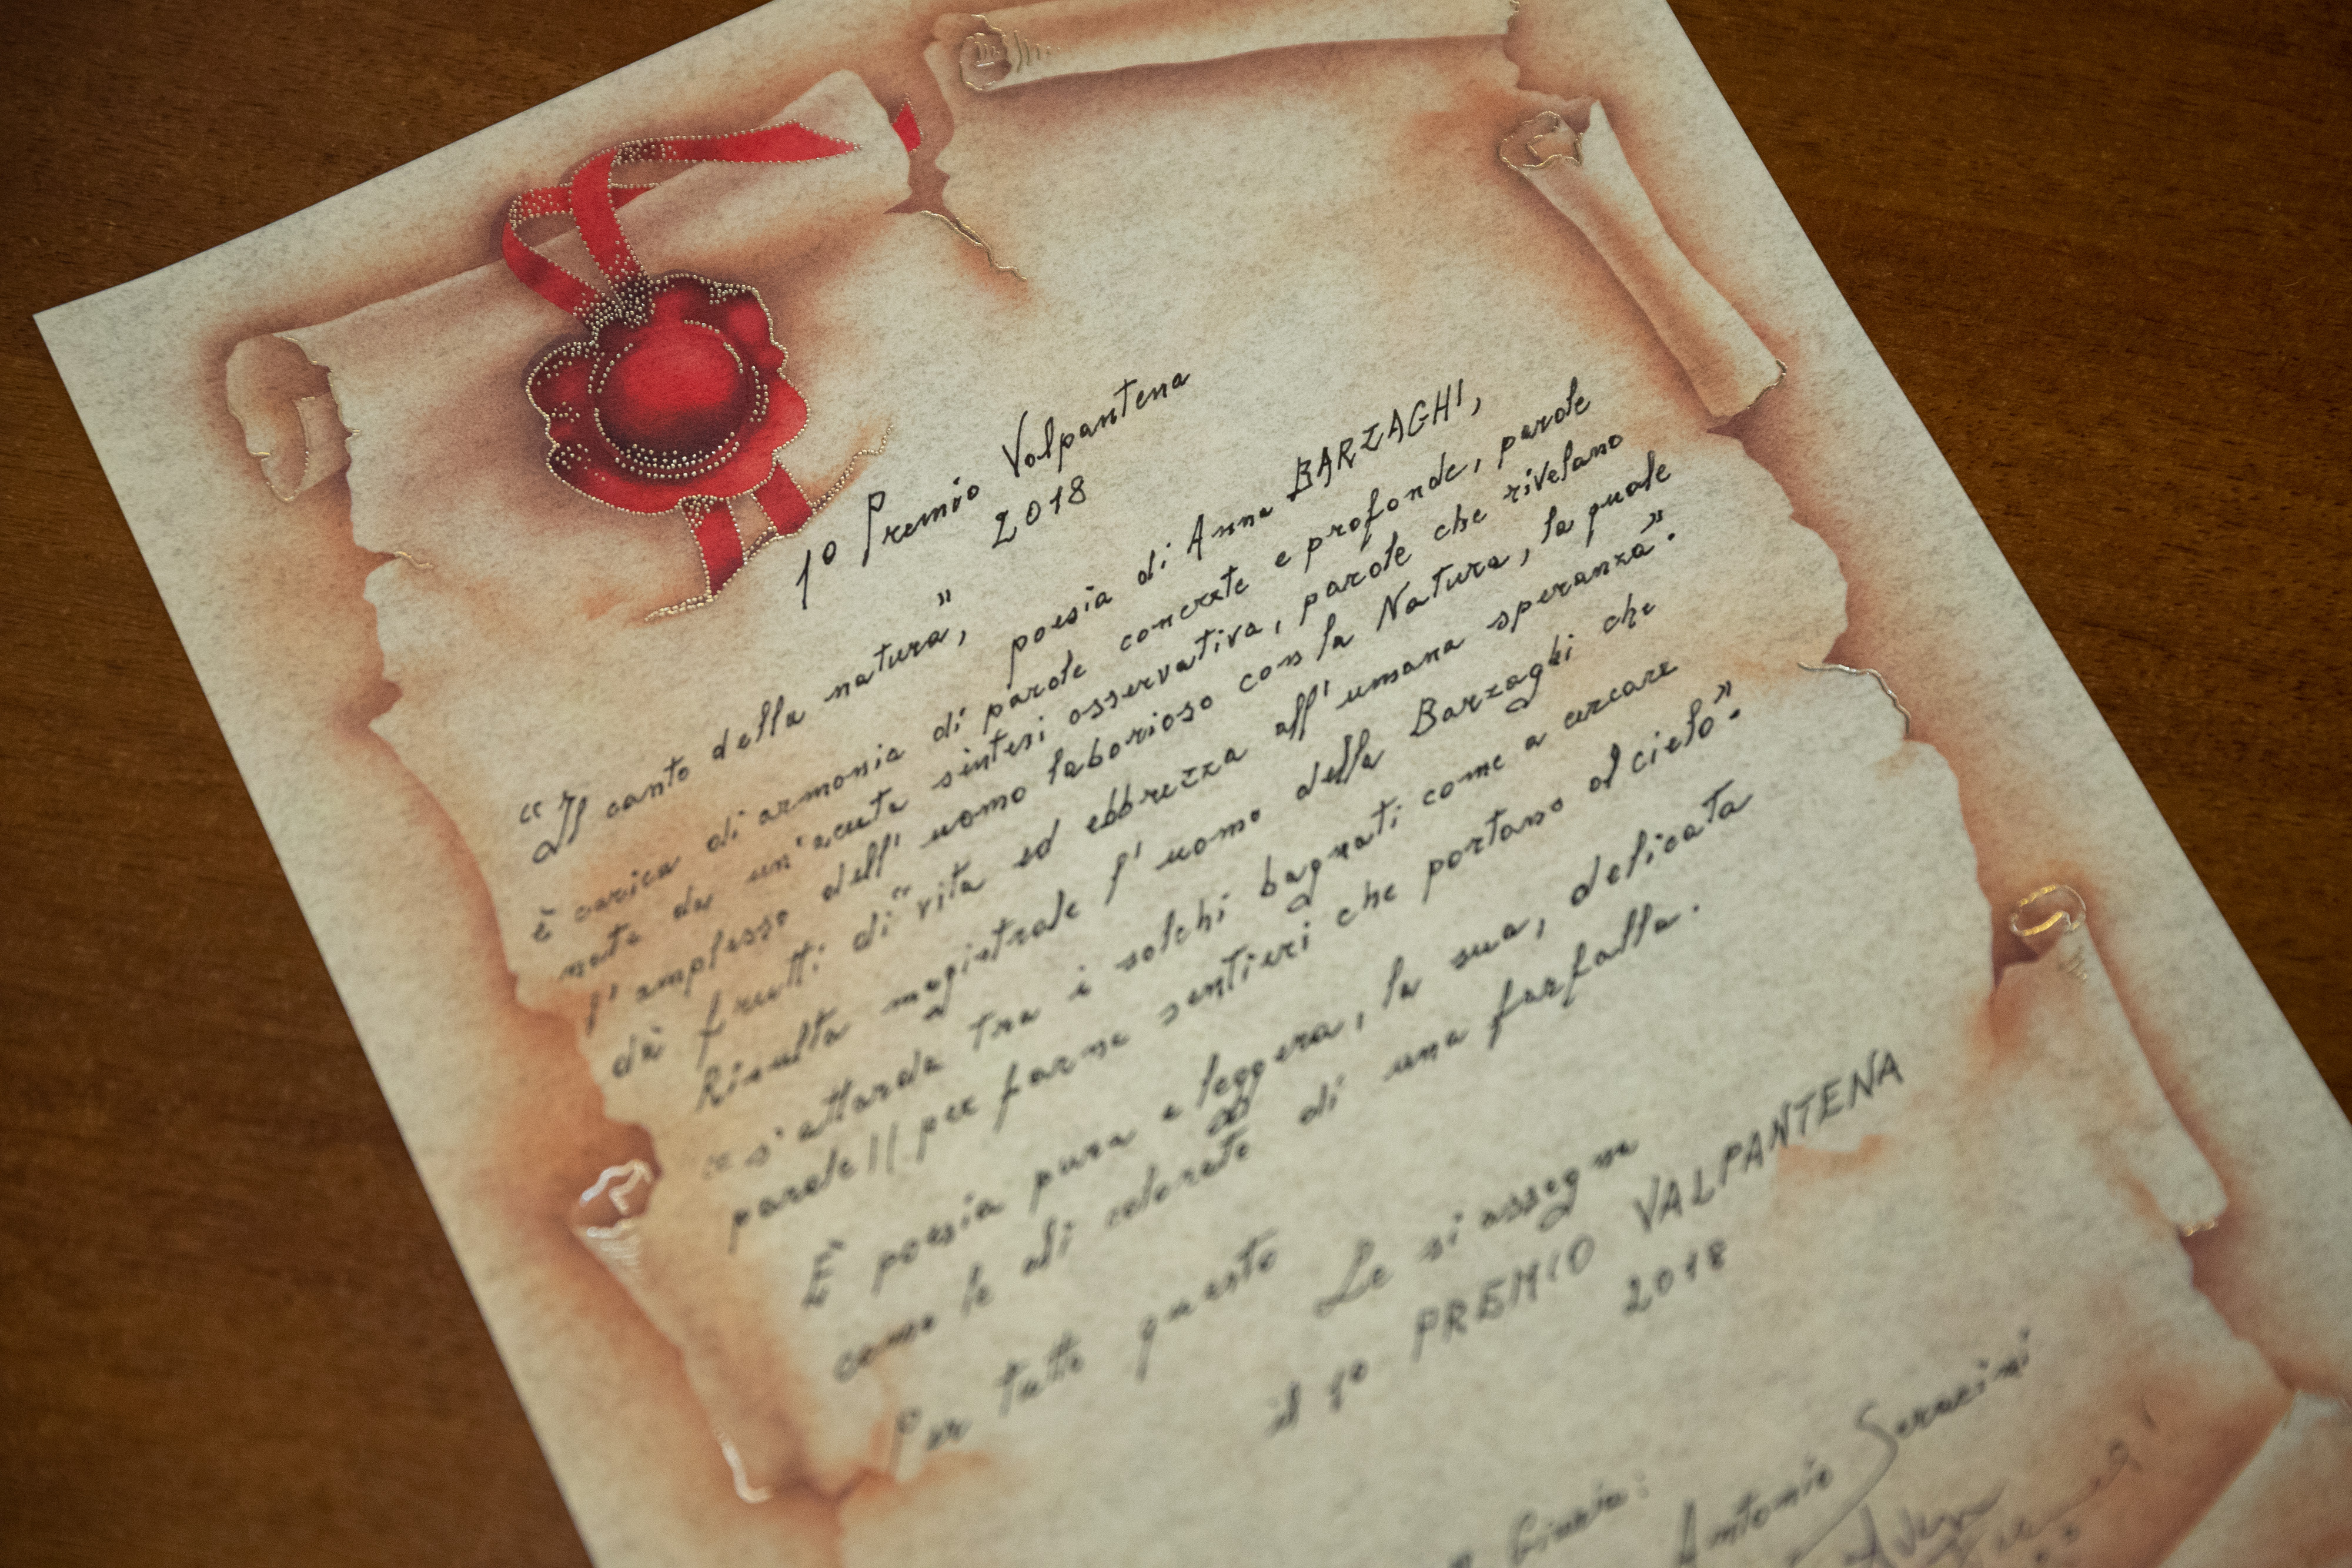 1º Premio Valpantena
2018
"Il canto della natura", poesia di Anna BARZAGHI,
è carica di armonia di parole concrete e profonde, parole
nate da un'acuta sintesi osservativa, parole che rivelano
l'amplesso dell'uomo laborioso con la Natura, la quale
dà frutti di "vita ed ebbrezza all'umana speranza".
Risulta magistrale l'uomo della Barzaghi che
"s'attarda tra i solchi bagnati come a cercare
parole // per farne sentieri che portano al cielo".
È poesia pura e leggera, la sua, delicata
come le ali colorate di una farfalla.
Per tutto questo Le si assegna
il 1º PREMIO VALPANTENA
2018
Giuria:
Antonio Seracini